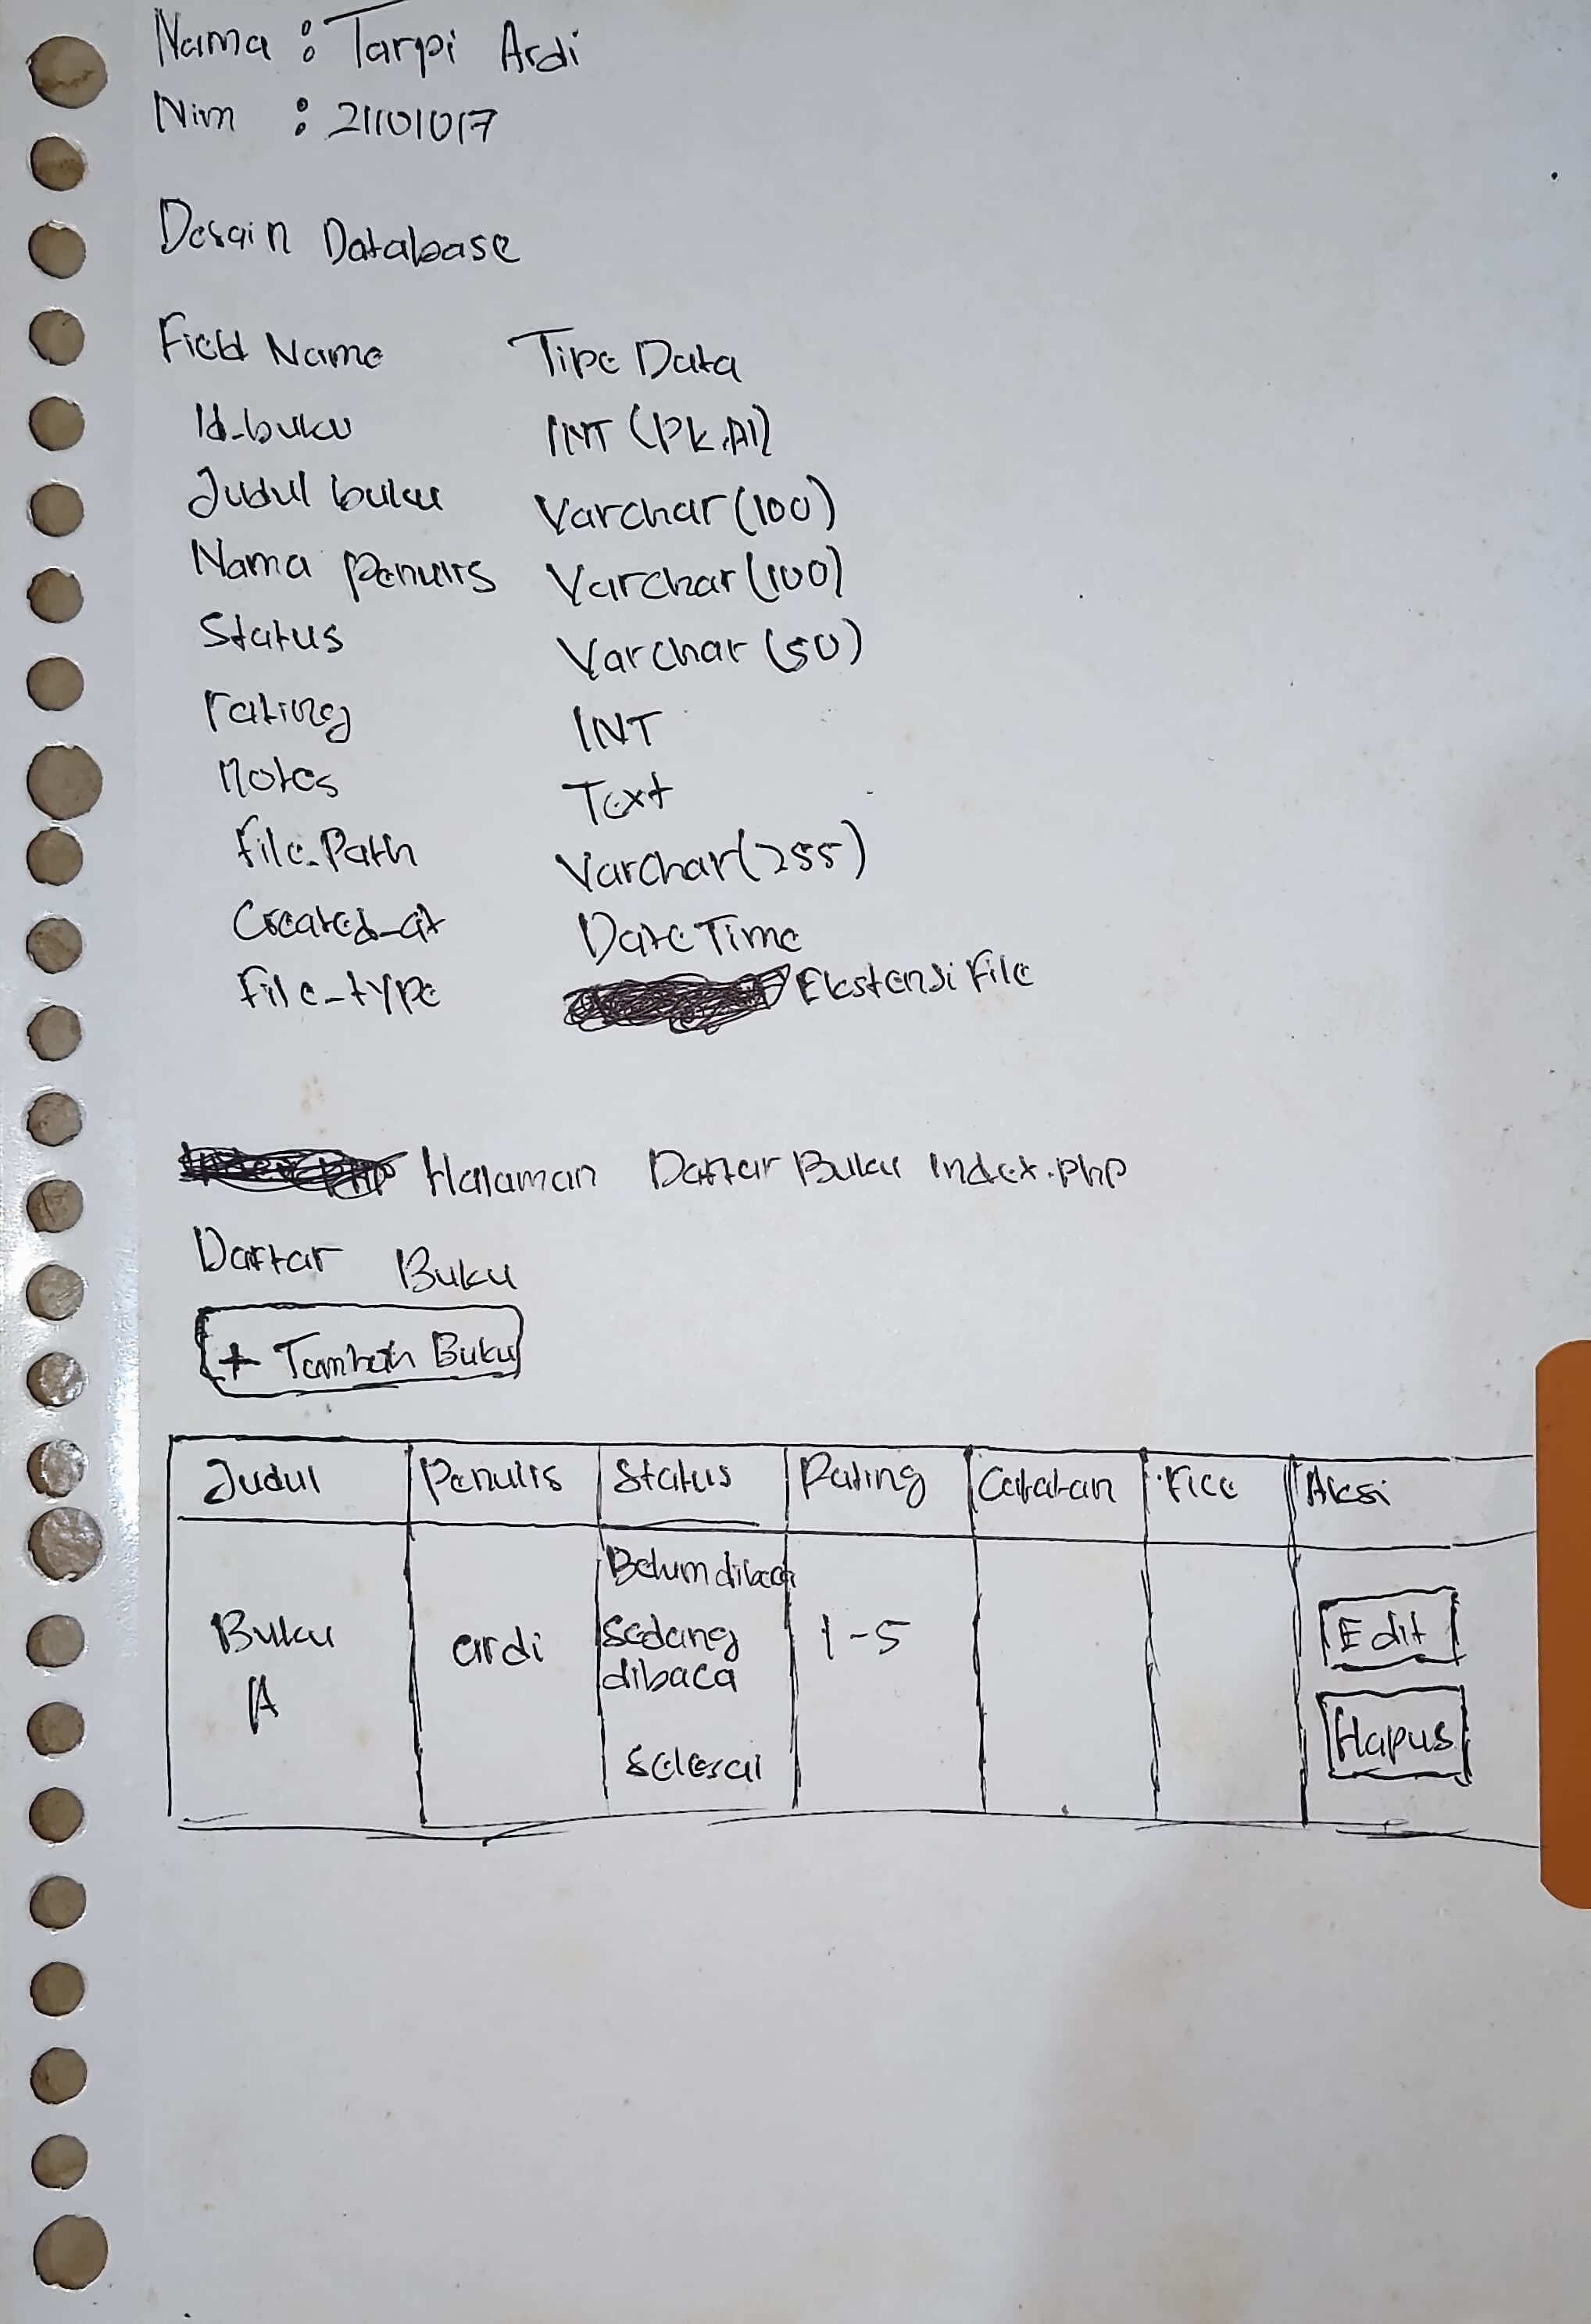 Nama : Tarpi Ardi
Nim : 21101017
Desain Database
Field Name Tipe Data
Id_buku INT (PK, AI)
Judul buku Varchar (100)
Nama Penulis Varchar (100)
Status Varchar (50)
rating INT
notes Text
file_Path Varchar (255)
Created_at DateTime
File_type Ekstensi File
Halaman Daftar Buku Index.php
Daftar Buku
+ Tambah Buku
Judul Penulis Status Rating Catatan File Aksi
Belum dibaca
Buku A ardi Sedang dibaca 1-5 Edit
Selesai Hapus